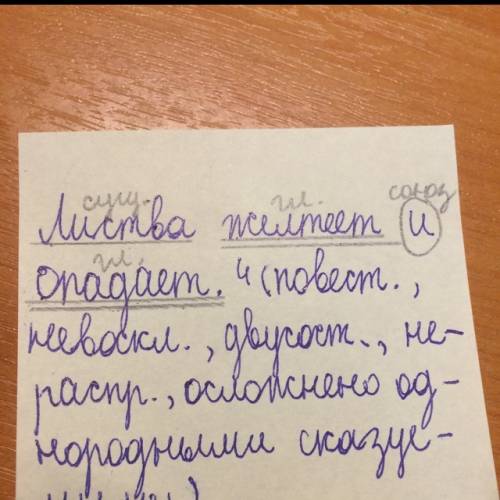 сущ. гл. союз
Листва желтеет и
гл.
опадает. 4 (повест.,
невоскл., двусост., не-
распр., осложнено од-
нородными сказуе-